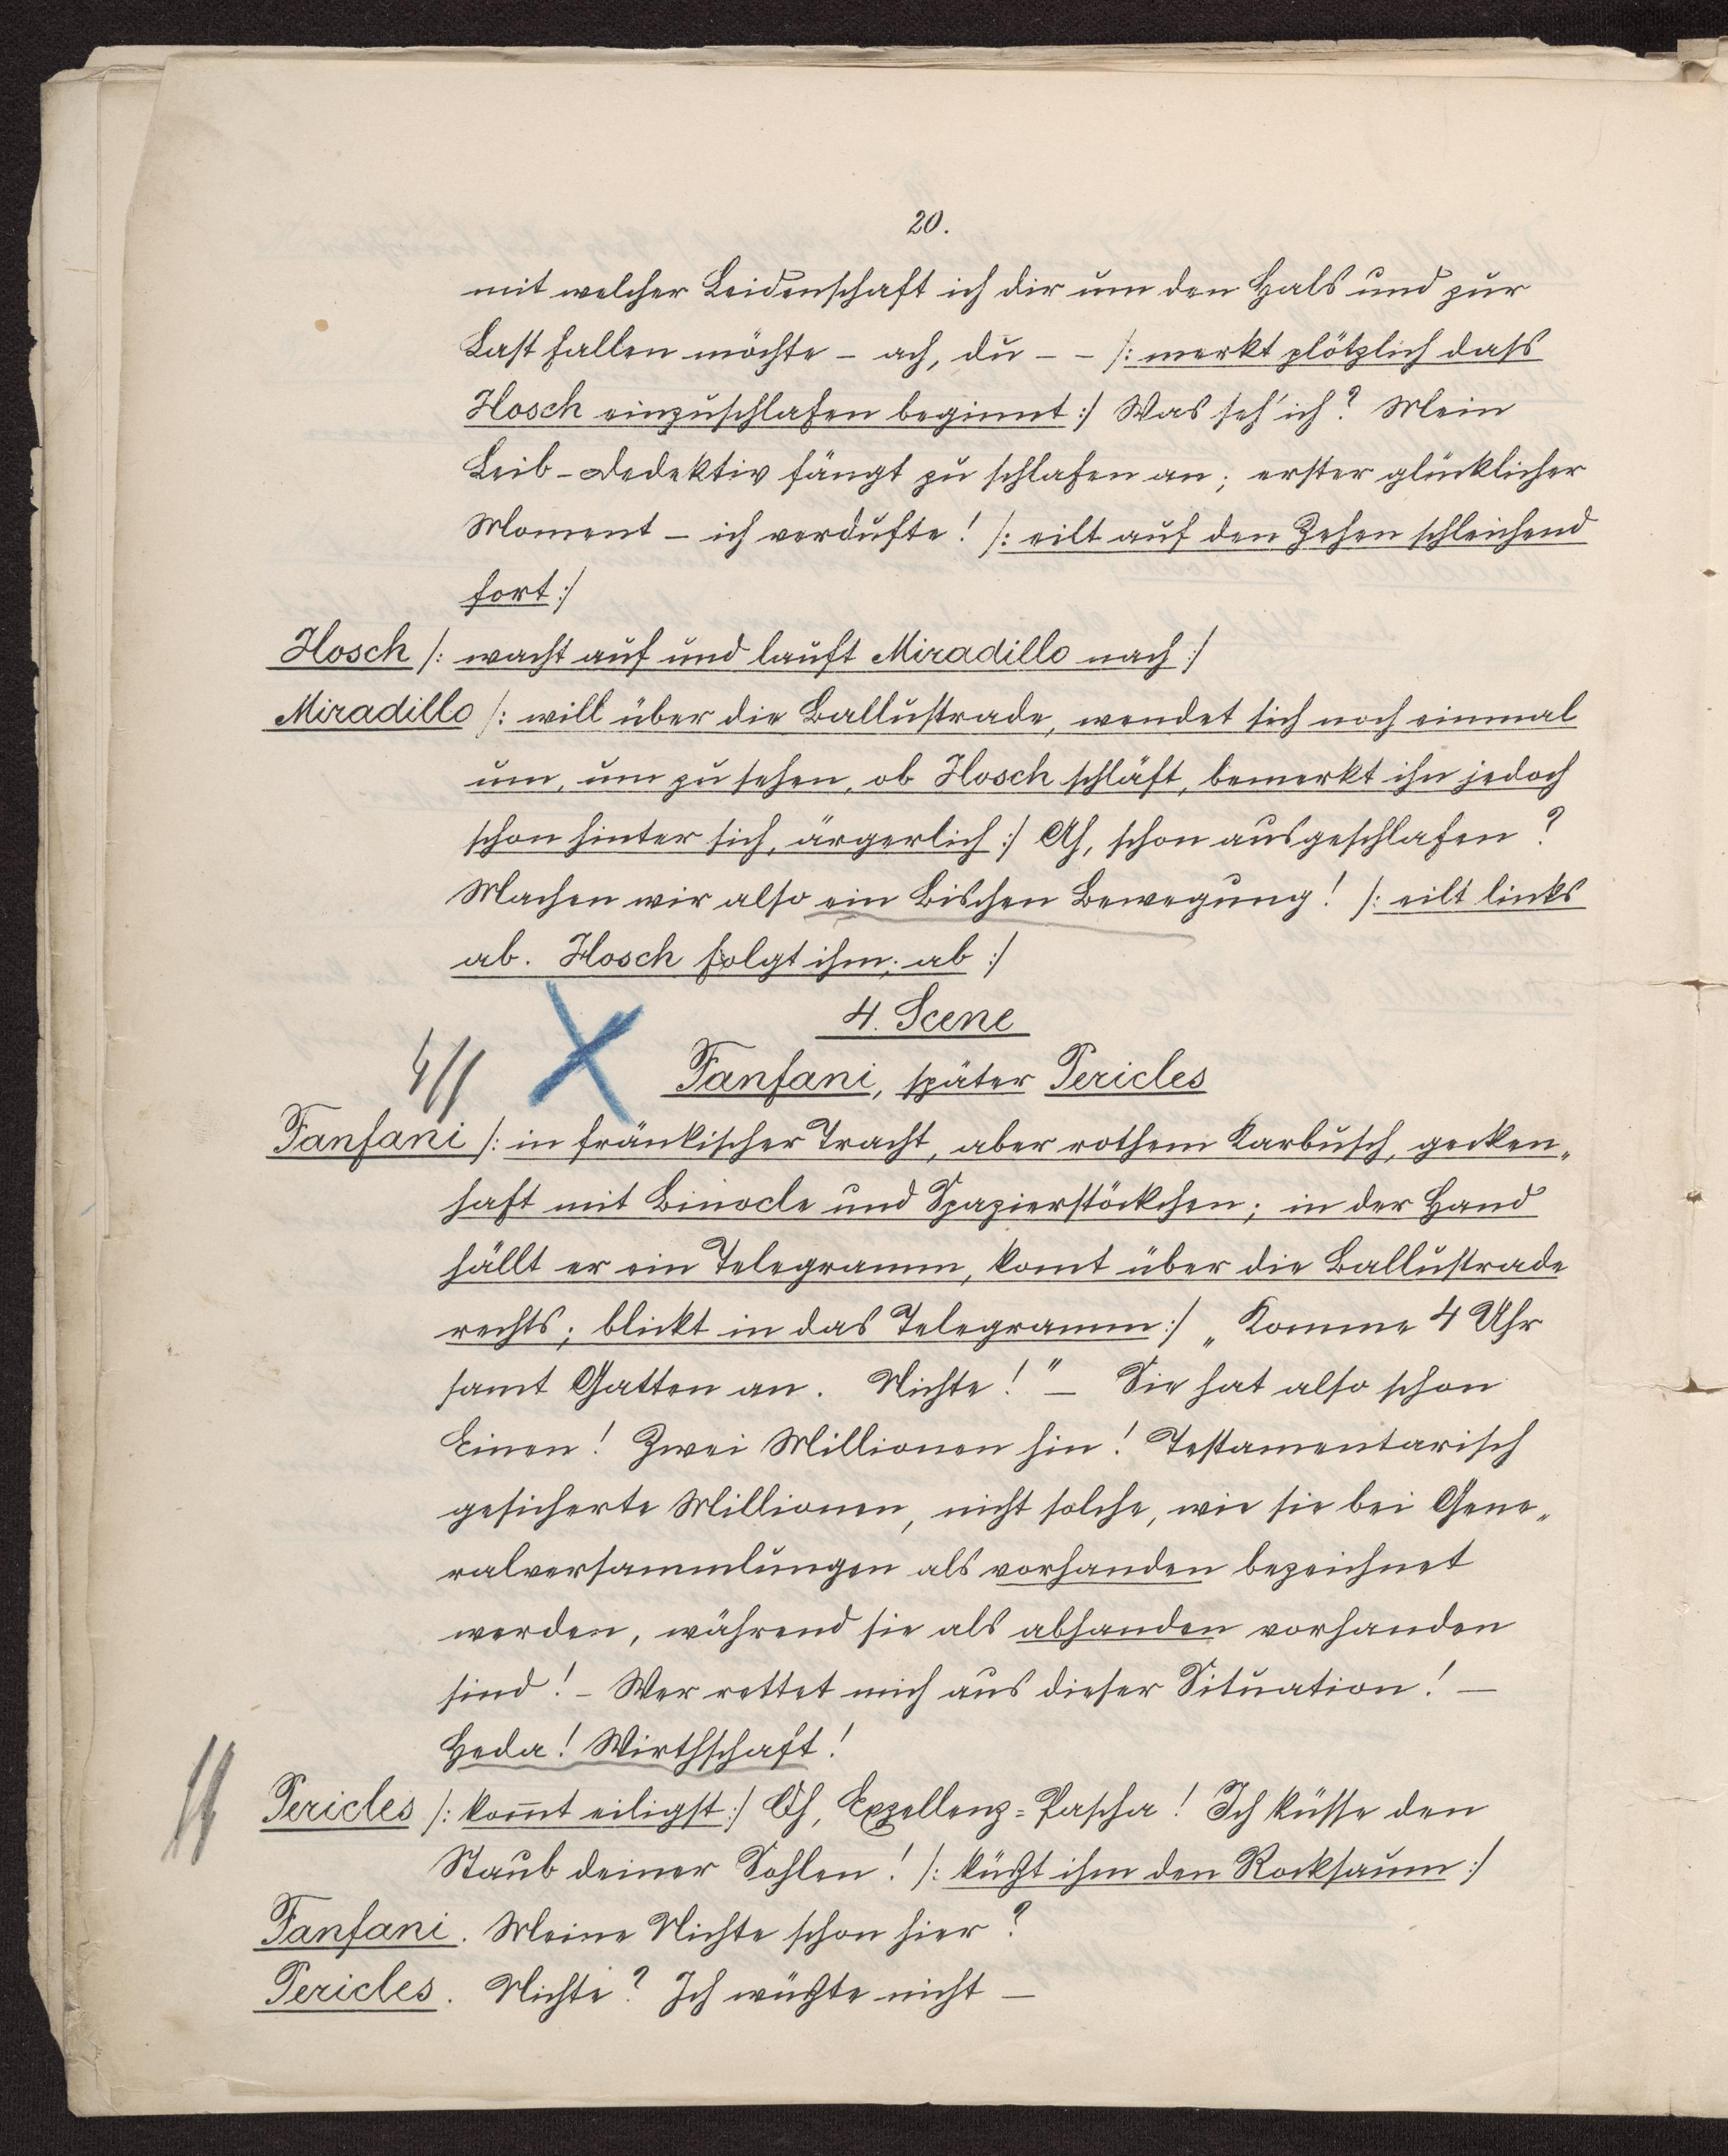 20.
mit welcher Leidenschaft ich dir um den Hals und zur
Last fallen möchte – ach, du – – /: merkt plötzlich dass
Hosch einzuschlafen beginnt :/ Was seh' ich? Mein
Leib-Dedektiv fängt zu schlafen an; erster glücklicher
Moment – ich verdufte! /: eilt auf den Zehen schleichend
fort :/
Hosch /: wacht auf und lauft Miradillo nach :/
Miradillo /: will über die Ballustrade, wendet sich noch einmal
um, um zu sehen, ob Hosch schläft, bemerkt ihn jedoch
schon hinter sich, ärgerlich :/ Ah, schon ausgeschlafen?
Machen wir also ein Bischen Bewegung! /: eilt links
ab. Hosch folgt ihm; ab :/
4. Scene
Fanfani, später Pericles
Fanfani /: in fränkischer Tracht, aber rothem Karbusch, gecken„
haft mit Binocle und Spazierstöckchen; in der Hand
hällt er ein Telegramm, komt über die Ballustrade
rechts; blickt in das Telegramm :/ „Komme 4 Uhr
samt Gatten an. Nichte!" – Sie hat also schon
Einen! Zwei Millionen hin! Testamentarisch
gesicherte Millionen, nicht solche, wie sie bei Gene„
ralversammlungen als vorhanden bezeichnet
werden, während sie als abhanden vorhanden
sind! – Wer rettet mich aus dieser Situation! –
Heda! Wirthschaft!
Pericles /: kom̄t eiligst :/ Oh, Exzellenz=Pascha! Ich küsse den
Staub deiner Sohlen! /: küßt ihm den Rocksaum :/
Fanfani. Meine Nichte schon hier?
Pericles. Nichte? Ich wüßte nicht –